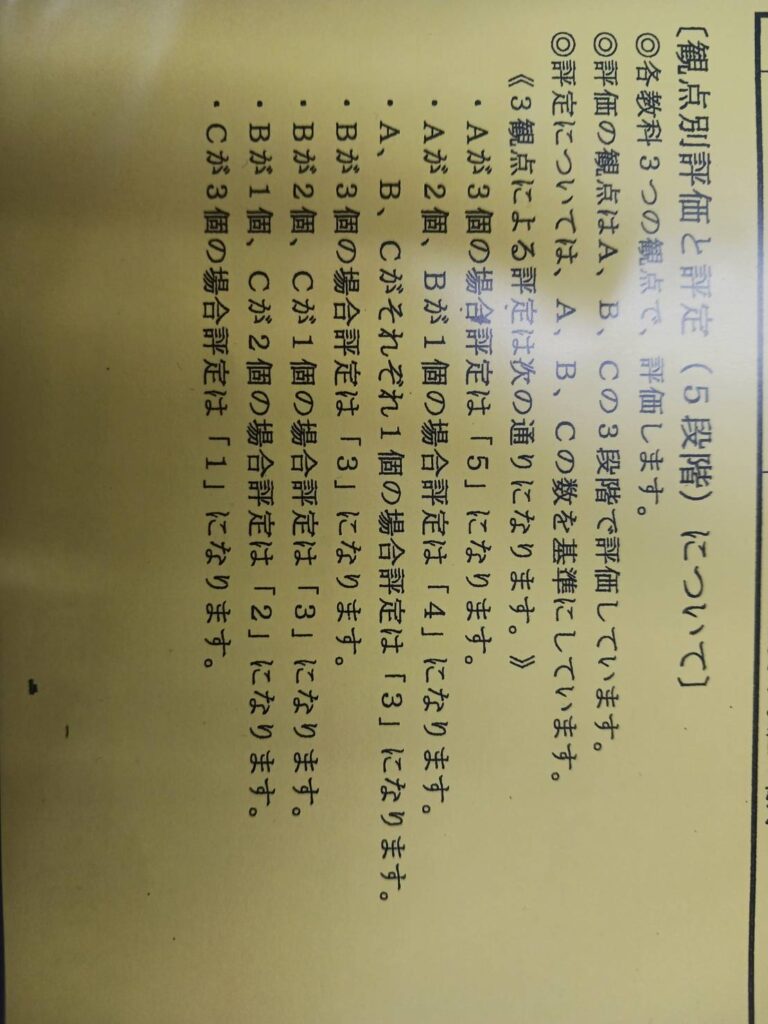 〔観点別評価と評定（５段階）について〕
◎各教科３つの観点で、評価します。
◎評価の観点はＡ、Ｂ、Ｃの３段階で評価しています。
◎評定については、Ａ、Ｂ、Ｃの数を基準にしています。
《３観点による評定は次の通りになります。》
・Ａが３個の場合評定は「５」になります。
・Ａが２個、Ｂが１個の場合評定は「４」になります。
・Ａ、Ｂ、Ｃがそれぞれ１個の場合評定は「３」になります。
・Ｂが３個の場合評定は「３」になります。
・Ｂが２個、Ｃが１個の場合評定は「３」になります。
・Ｂが１個、Ｃが２個の場合評定は「２」になります。
・Ｃが３個の場合評定は「１」になります。